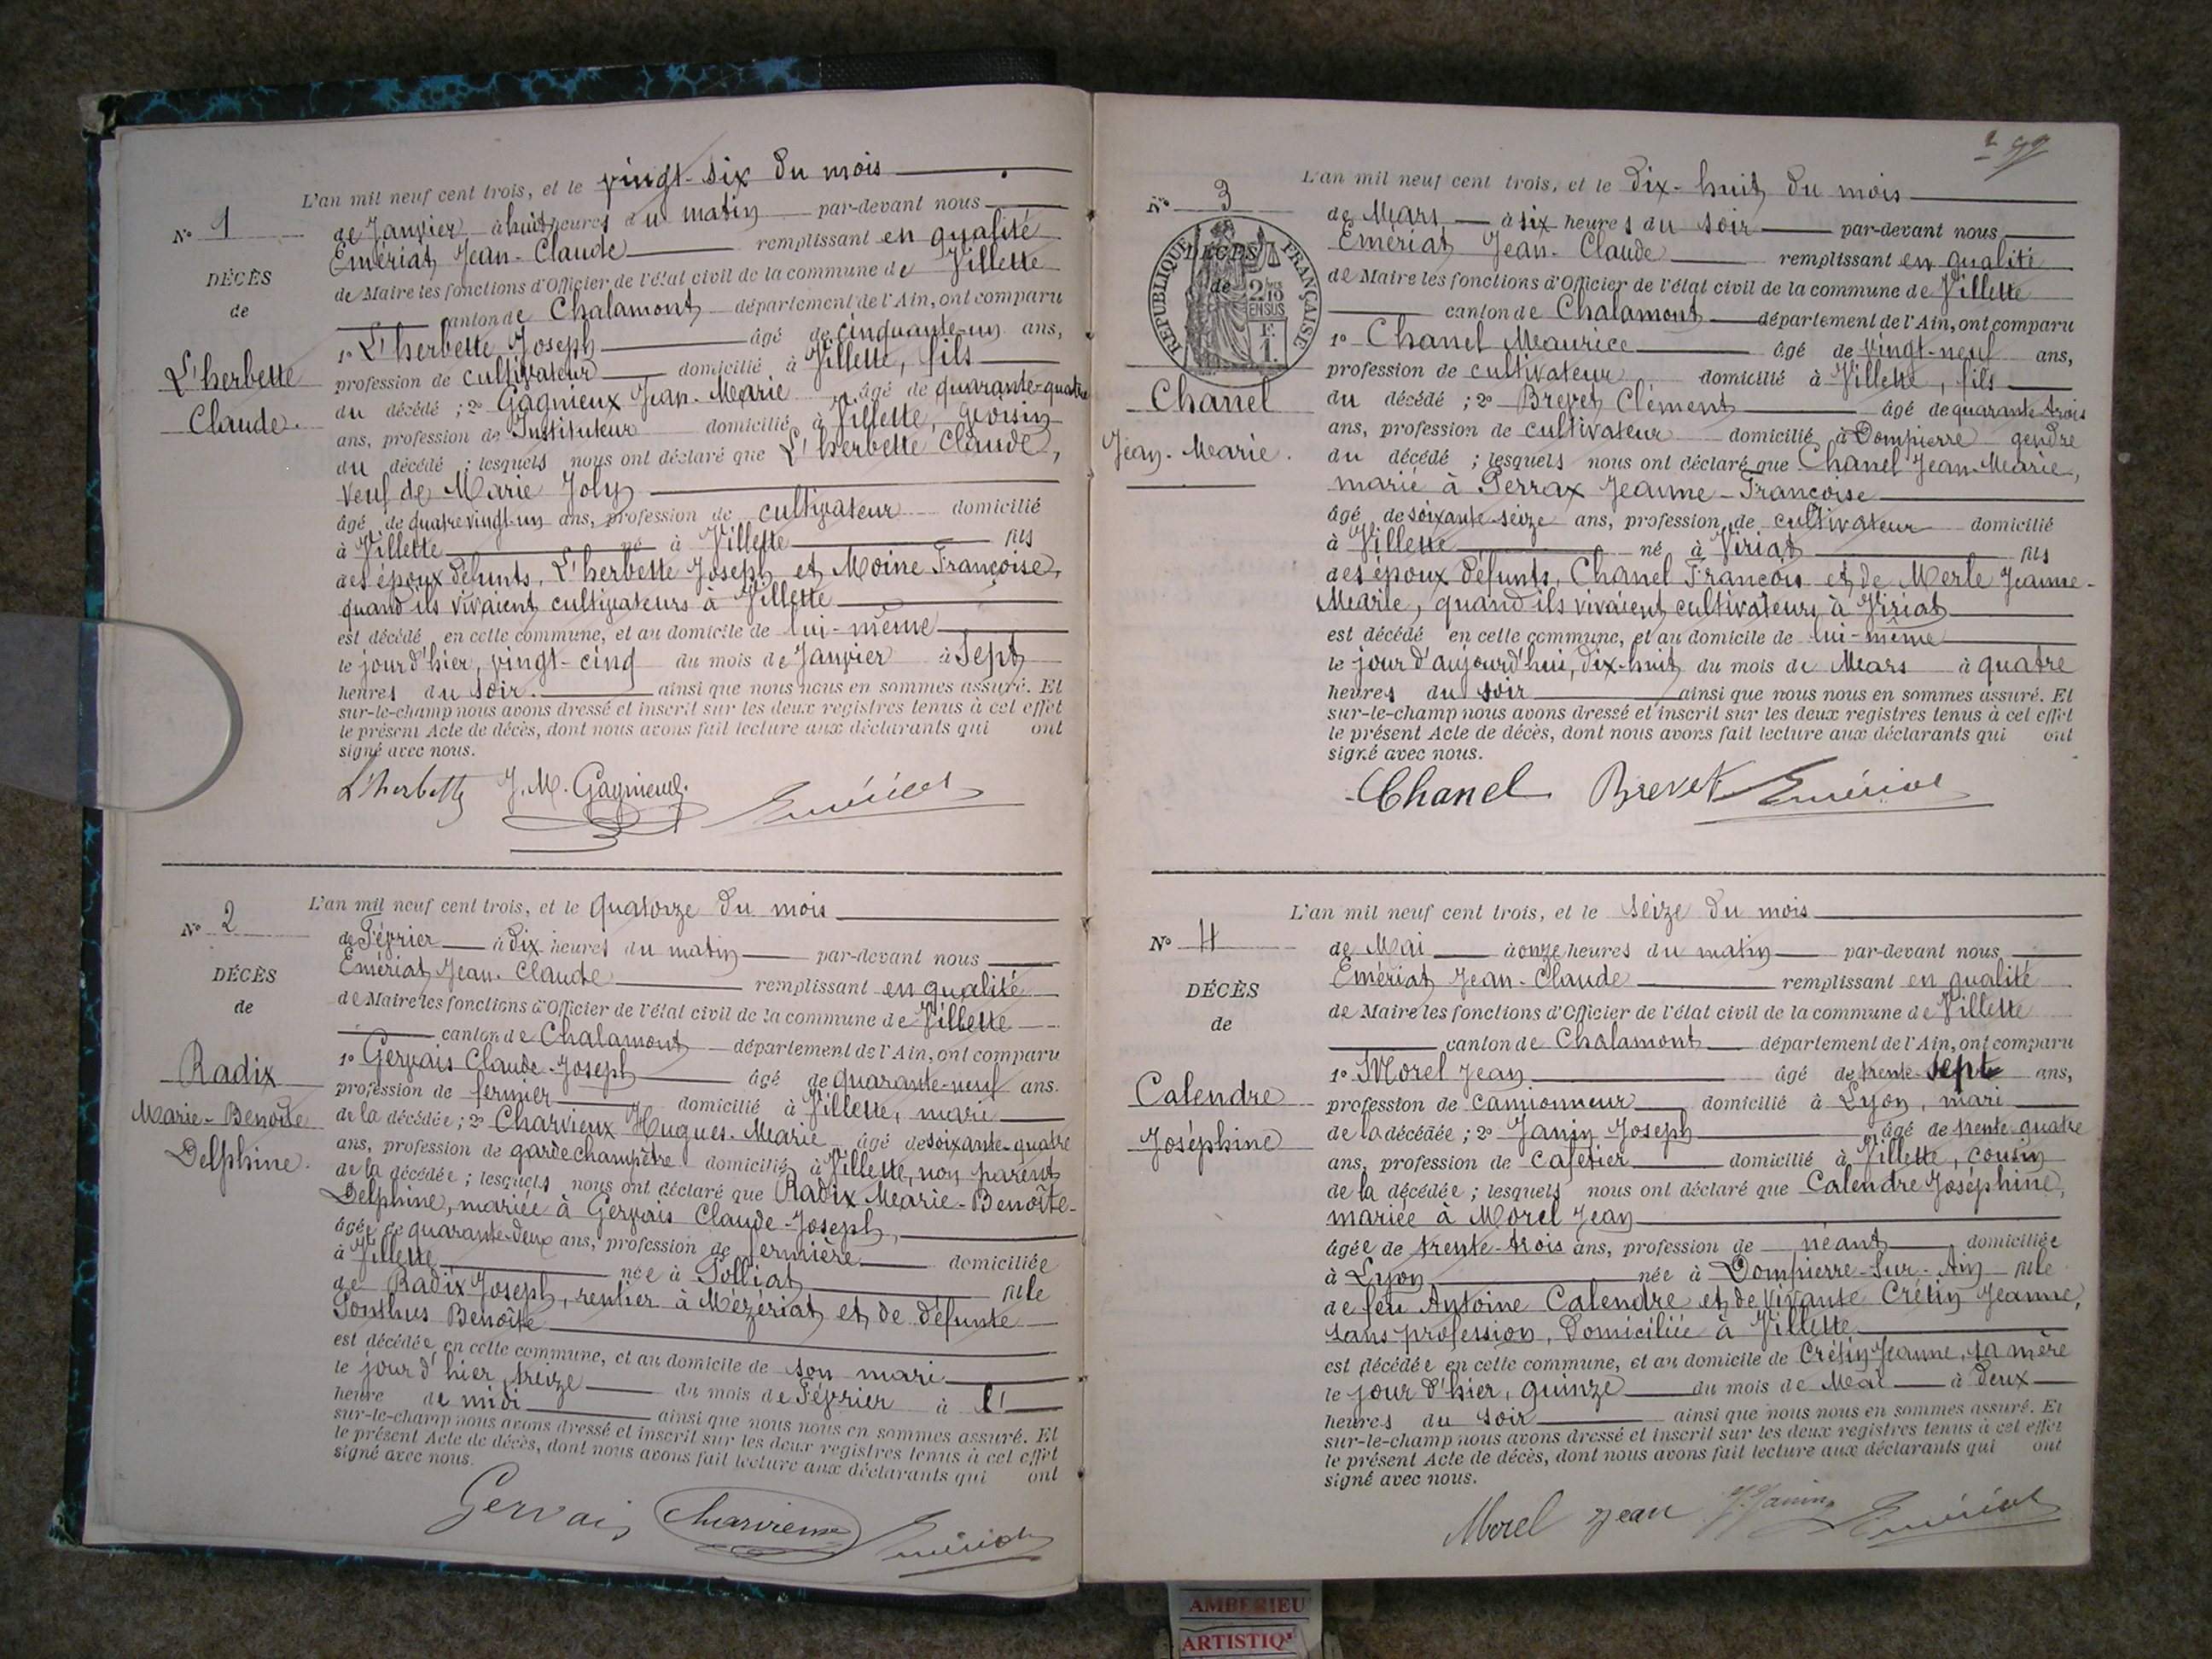 L'an mil neuf cent trois, et le vingt-six du mois
N° 1
de Janvier à huit heures du matin par-devant nous
Emériat Jean-Claude remplissant en qualité
DÉCÈS
de Maire les fonctions d'Officier de l'état civil de la commune de Villette
de
canton de Chalamont département de l'Ain, ont comparu
1° L'herbette Joseph âgé de cinquante-un ans,
L'herbette
profession de cultivateur domicilié à Villette, fils
Claude.
du décédé ; 2° Gagnieux Jean-Marie âgé de quarante-quatre
ans, profession de Instituteur domicilié à Villette, voisin
du décédé ; lesquels nous ont déclaré que L'herbette Claude,
veuf de Marie Joly
âgé de quatre vingt-un ans, profession de cultivateur domicilié
à Villette né à Villette fils
des époux défunts, L'herbette Joseph et Moine Françoise,
quand ils vivaient cultivateurs à Villette
est décédé en cette commune, et au domicile de lui-même
le jour d'hier, vingt-cinq du mois de Janvier à sept
heures du soir. ainsi que nous nous en sommes assuré. Et
sur-le-champ nous avons dressé et inscrit sur les deux registres tenus à cet effet
le présent Acte de décès, dont nous avons fait lecture aux déclarants qui ont
signé avec nous.
L'herbette J. M. Gagnieux. Emériat
L'an mil neuf cent trois, et le quatorze du mois
N° 2
de Février à dix heures du matin par-devant nous
Emériat Jean-Claude remplissant en qualité
DÉCÈS
de Maire les fonctions d'Officier de l'état civil de la commune de Villette
de
canton de Chalamont département de l'Ain, ont comparu
1° Gervais Claude-Joseph âgé de quarante-neuf ans.
Radix
profession de fermier domicilié à Villette, mari
Marie-Benoîte
de la décédée ; 2° Charvieux Hugues-Marie âgé de soixante-quatre
Delphine.
ans, profession de garde champêtre domicilié à Villette, non parent
de la décédée ; lesquels nous ont déclaré que Radix Marie-Benoîte-
Delphine, mariée à Gervais Claude-Joseph,
âgée de quarante-deux ans, profession de fermière domiciliée
à Villette née à Polliat fille
de Radix Joseph, rentier à Mézériat et de défunte
Ponthus Benoîte
est décédée en cette commune, et au domicile de son mari
le jour d'hier treize du mois de Février à l'
heure de midi ainsi que nous nous en sommes assuré. Et
sur-le-champ nous avons dressé et inscrit sur les deux registres tenus à cet effet
le présent Acte de décès, dont nous avons fait lecture aux déclarants qui ont
signé avec nous.
Gervais Charvieux Emériat
L'an mil neuf cent trois, et le dix-huit du mois
N° 3
de Mars à six heures du soir par-devant nous
Emériat Jean-Claude remplissant en qualité
DÉCÈS
de
RÉPUBLIQUE FRANÇAISE
2/10 EN SUS
F.
1.
de Maire les fonctions d'Officier de l'état civil de la commune de Villette
canton de Chalamont département de l'Ain, ont comparu
1° Chanel Maurice âgé de vingt-neuf ans,
profession de cultivateur domicilié à Villette, fils
Chanel
du décédé ; 2° Brevet Clément âgé de quarante-trois
Jean-Marie.
ans, profession de cultivateur domicilié à Dompierre gendre
du décédé ; lesquels nous ont déclaré que Chanel Jean-Marie,
marié à Perrax Jeanne-Françoise
âgé de soixante-seize ans, profession de cultivateur domicilié
à Villette né à Viriat fils
des époux défunts, Chanel François et de Merle Jeanne-
Marie, quand ils vivaient cultivateurs à Viriat
est décédé en cette commune, et au domicile de lui-même
le jour d'aujourd'hui, dix-huit du mois de Mars à quatre
heures du soir ainsi que nous nous en sommes assuré. Et
sur-le-champ nous avons dressé et inscrit sur les deux registres tenus à cet effet
le présent Acte de décès, dont nous avons fait lecture aux déclarants qui ont
signé avec nous.
Chanel Brevet Emériat
L'an mil neuf cent trois, et le seize du mois
N° 4
de Mai à onze heures du matin par-devant nous
Emériat Jean-Claude remplissant en qualité
DÉCÈS
de Maire les fonctions d'Officier de l'état civil de la commune de Villette
de
canton de Chalamont département de l'Ain, ont comparu
1° Morel Jean âgé de trente-sept ans,
Calendre
profession de camionneur domicilié à Lyon, mari
Joséphine
de la décédée ; 2° Janin Joseph âgé de trente-quatre
ans, profession de cafetier domicilié à Villette, cousin
de la décédée ; lesquels nous ont déclaré que Calendre Joséphine,
mariée à Morel Jean
âgée de trente-trois ans, profession de néant domiciliée
à Lyon née à Dompierre-sur-Ain fille
de feu Antoine Calendre et de vivante Crétin Jeanne,
sans profession, domiciliée à Villette
est décédée en cette commune, et au domicile de Crétin Jeanne, sa mère
le jour d'hier, quinze du mois de Mai à deux
heures du soir ainsi que nous nous en sommes assuré. Et
sur-le-champ nous avons dressé et inscrit sur les deux registres tenus à cet effet
le présent Acte de décès, dont nous avons fait lecture aux déclarants qui ont
signé avec nous.
Morel Jean J. Janin Emériat
AMBERIEU
ARTISTIQ